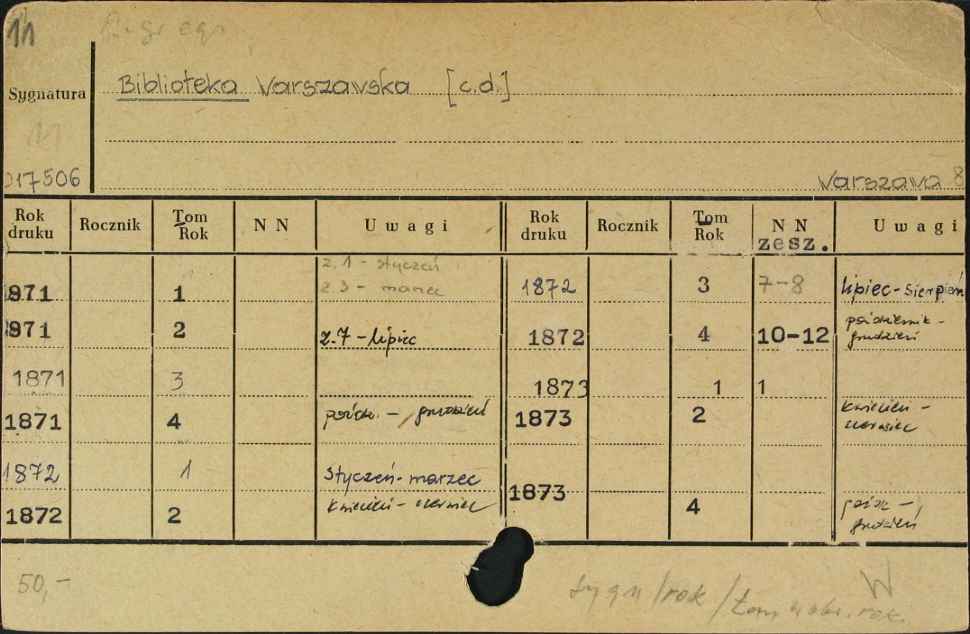 11
Sygnatura
Biblioteka Warszawska [c.d.]
11
017506
Warszawa 8
Rok druku Rocznik Tom Rok NN Uwagi Rok druku Rocznik Tom Rok NN zesz. Uwagi
z.1 - styczeń
971 1 z.3 - marzec 1872 3 7-8 lipiec-sierpień
971 2 z.7 - lipiec 1872 4 10-12 październik - grudzień
1871 3 1873 1 1
1871 4 paźdz. - grudzień 1873 2 kwiecień - czerwiec
1872 1 styczeń-marzec
1872 2 kwiecień - czerwiec 1873 4 paźdz - grudzień
50,-
sygn/rok/tom
W
rok.